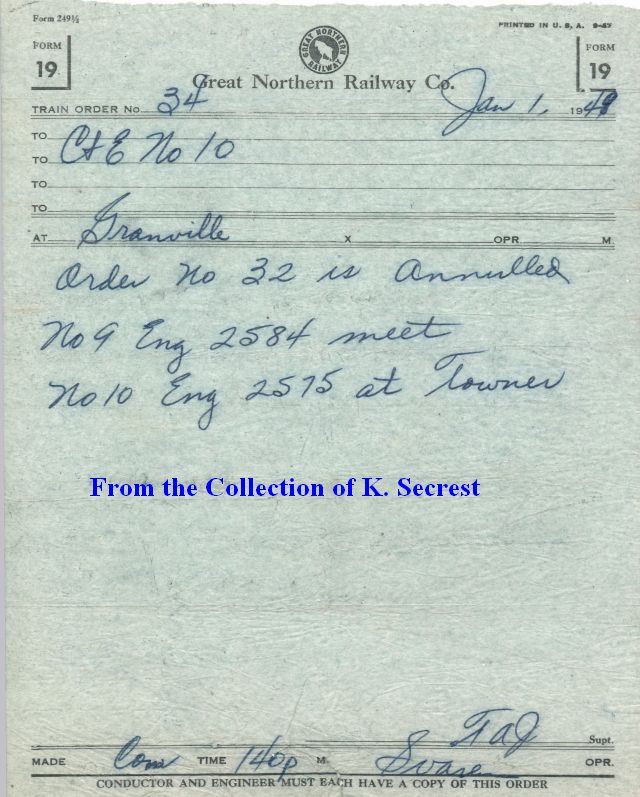 Form 249½
PRINTED IN U. S. A. 9-47
FORM 19
GREAT NORTHERN RAILWAY
FORM 19
Great Northern Railway Co.
TRAIN ORDER No. 34 Jan 1, 1949
TO
TO C&E No 10
TO
TO
AT Granville X OPR M.
Order No 32 is Annulled
No 9 Eng 2584 meet
No 10 Eng 2575 at Towner
From the Collection of K. Secrest
Supt.
MADE Com TIME 140p M. OPR.
CONDUCTOR AND ENGINEER MUST EACH HAVE A COPY OF THIS ORDER